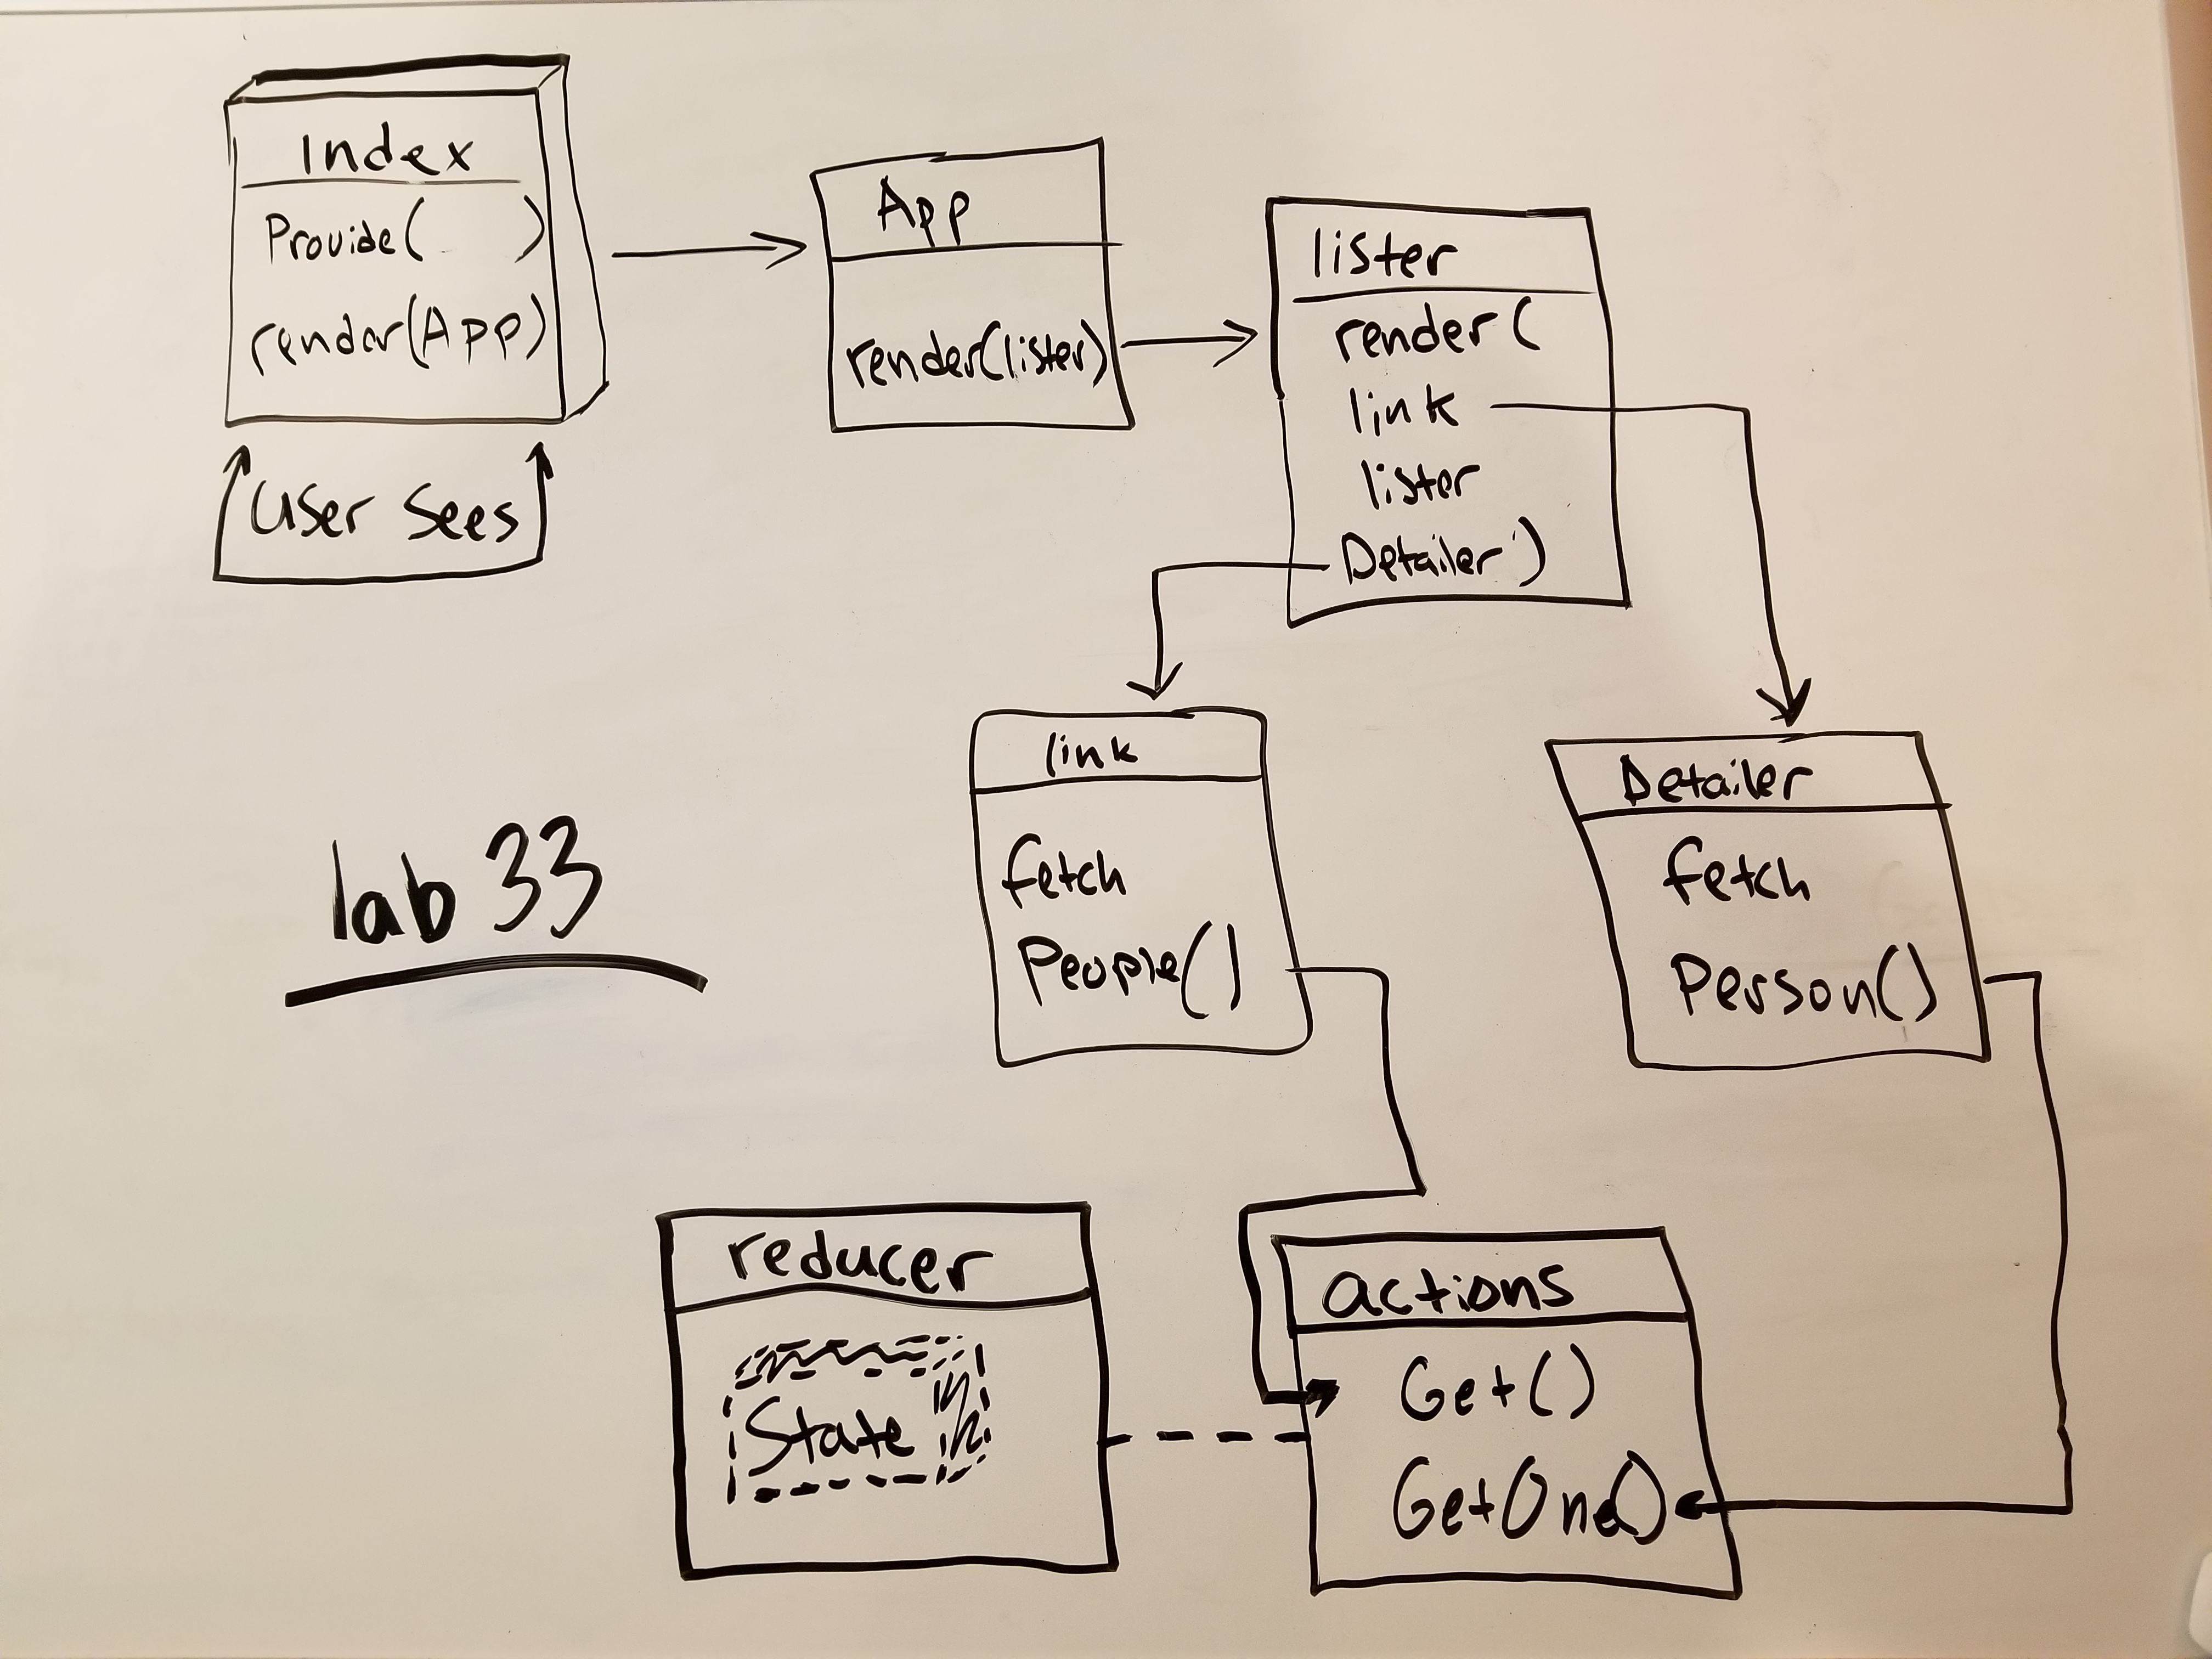 Index
Provide( )
render(App)
User Sees
App
render(lister)
lister
render(
link
lister
Detailer)
lab 33
link
fetch
People()
Detailer
fetch
Person()
reducer
State
actions
Get()
GetOne()